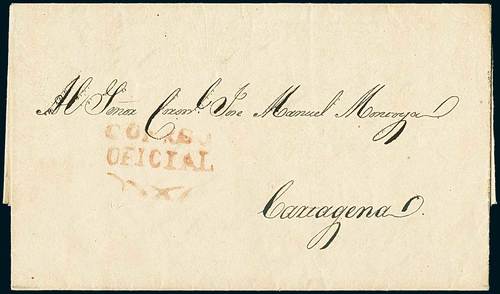 Al Señor Coron.l Jose Manuel Montoya
CORREO
OFICIAL
Cartagena.